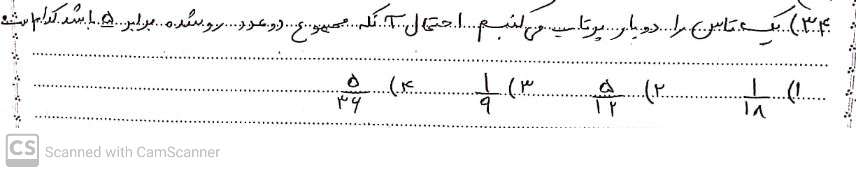 ۳۴) یک تاس را دو بار پرتاب می کنیم احتمال آنکه مجموع دو عدد رو شده برابر ۵ باشد کدام است
۱) ۱/۱۸ ۲) ۵/۱۲ ۳) ۱/۹ ۴) ۵/۳۶
CS Scanned with CamScanner